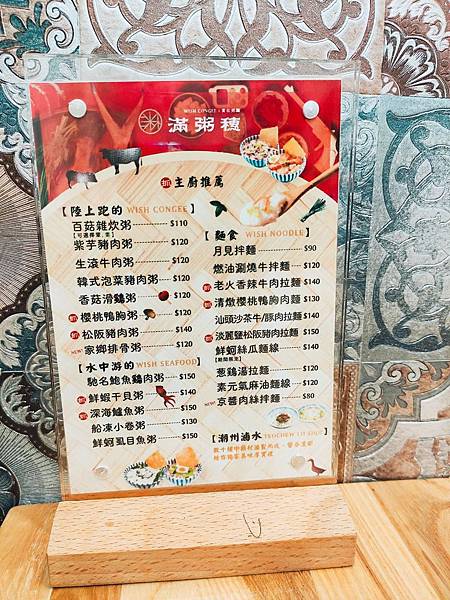 WISH CONGEE
滿粥穗
主廚推薦
【陸上跑的 WISH CONGEE】
百菇雜炊粥 $110
紫芋豬肉粥 $120
生滾牛肉粥 $120
韓式泡菜豬肉粥 $120
香菇滑鷄粥 $120
櫻桃鴨胸粥 $120
松阪豬肉粥 $140
NEW! 家鄉排骨粥 $120
【水中游的 WISH SEAFOOD】
馳名鮑魚鷄肉粥 $150
鮮蝦干貝粥 $150
深海鱸魚粥 $150
船凍小卷粥 $130
鮮蚵虱目魚粥 $150
【麵食 WISH NOODLE】
月見拌麵 $90
燃油涮燒牛拌麵 $120
老火香辣牛肉拉麵 $120
清燉櫻桃鴨胸肉麵 $130
汕頭沙茶牛/豚肉拉麵 $120
淡麗鹽松阪豬肉拉麵 $150
鮮蚵絲瓜麵線 $140
【期間限定】
蔥鷄湯拉麵 $120
素元氣麻油麵線 $120
NEW! 京醬肉絲拌麵 $80
【潮州滷水 TEOCHEW LU SOUP】